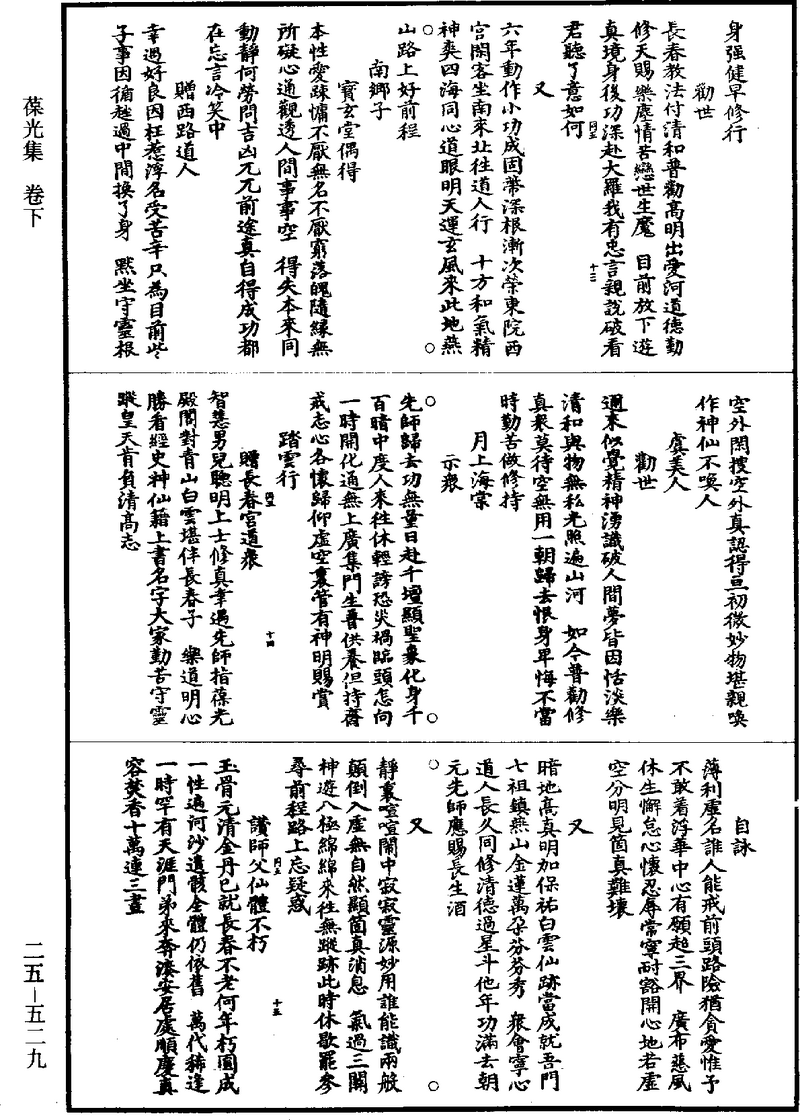 葆光集　卷下
身强健早修行
勸世
長春教法付清和普勸高明出愛河道德勤
修天賜樂塵情苦戀世生魔　目前放下遊
真境身後功深赴大羅我有忠言親說破看
君聽了意如何
又
六年動作小功成固蒂深根漸次榮東院西
宮閑客坐南來北往道人行　十方和氣精
神爽四海同心道眼明天運玄風來此地燕
山路上好前程
南鄉子
寶玄堂偶得
本性愛踈慵不厭無名不厭窮落魄隨緣無
所礙心通觀透人間事事空　得失本來同
動靜何勞問吉凶兀兀前途真自得成功都
在忘言冷笑中
贈西路道人
幸遇好良因枉惹浮名受苦辛只為目前些
子事因循趂過中間換了身　默坐守靈根
空外閑搜空外真認得亘初微妙物堪親喚
作神仙不喚人
虞美人
勸世
邇來似覺精神湧識破人間夢皆因恬淡樂
清和與物無私光照遍山河　如今普勸修
真衆莫待空無用一朝歸去恨身卑悔不當
時勤苦做修持
月上海棠
示衆
先師歸去功無量日赴千壇顯聖象化身千
百暗中度人來往休輕謗恐災禍臨頭怎向
一時開化通無上廣集門生普供養但持齋
戒志心各懷歸仰虛空裏管有神明賜賞
踏雲行
贈長春宮道衆
智慧男兒聰明上士修真幸遇先師指葆光
殿閣對青山白雲堪伴長春子　樂道明心
勝看經史神仙籍上書名字大家勤苦守靈
蹤皇天肯負清高志
自詠
薄利虛名誰人能戒前頭路險猶貪愛惟予
不敢着浮華中心有願超三界　廣布慈風
休生懈怠心懷忍辱常寧耐豁開心地若虛
空分明見箇真難壞
又
暗地高真明加保祐白雲仙跡當成就吾門
七祖鎮燕山金蓮萬朵芬芬秀　衆會寧心
道人長久同修清德過星斗他年功滿去朝
元先師應賜長生酒
又
靜裏喧喧鬧中寂寂靈源妙用誰能識兩般
顛倒入虛無自然顯箇真消息　氣過三關
神遊八極綿綿來往無蹤跡此時休歇罷參
尋前程路上忘疑惑
讚師父仙體不朽
玉骨元清金丹已就長春不老何年朽園成
一性過河沙遺骸全體仍依舊　萬代稀逢
一時罕有天涯門弟來奔湊安居處順慶真
容焚香十萬連三晝
二五－五二九